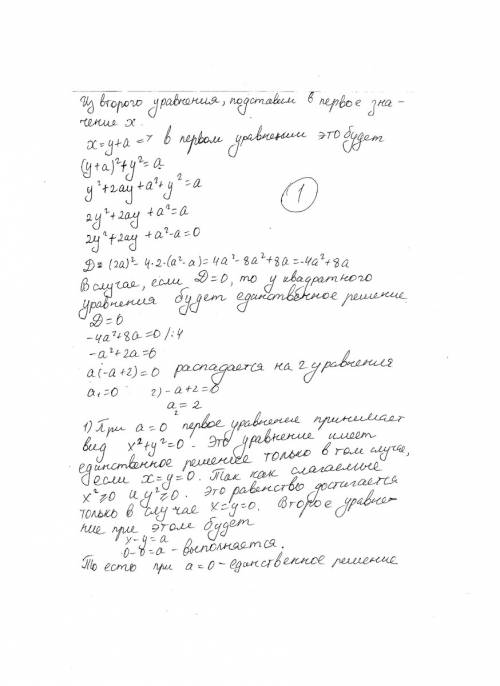 Из второго уравнения, подставим в первое зна-
чение x.
x=y+a => в первом уравнении это будет
(y+a)²+y²=a
y²+2ay+a²+y²=a
2y²+2ay+a²=a
2y²+2ay+a²-a=0
1
D=(2a)²-4·2·(a²-a)=4a²-8a²+8a=-4a²+8a
В случае, если D=0, то у квадратного
уравнения будет единственное решение
D=0
-4a²+8a=0 /:4
-a²+2a=0
a(-a+2)=0 распадается на 2 уравнения
a₁=0 2) -a+2=0
a₂=2
1) При a=0 первое уравнение принимает
вид x²+y²=0 - это уравнение имеет
единственное решение только в том случае,
если x=y=0. Так как слагаемые
x²≥0 и y²≥0. Это равенство достигается
только в случае x=y=0. Второе уравне-
ние при этом будет
x-y=a
0-0=a - выполняется.
То есть при a=0 - единственное решение